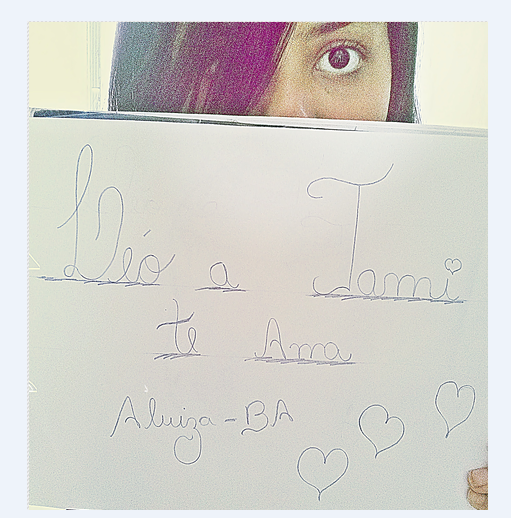 Déo a Tami
te Ama
Aluiza-BA